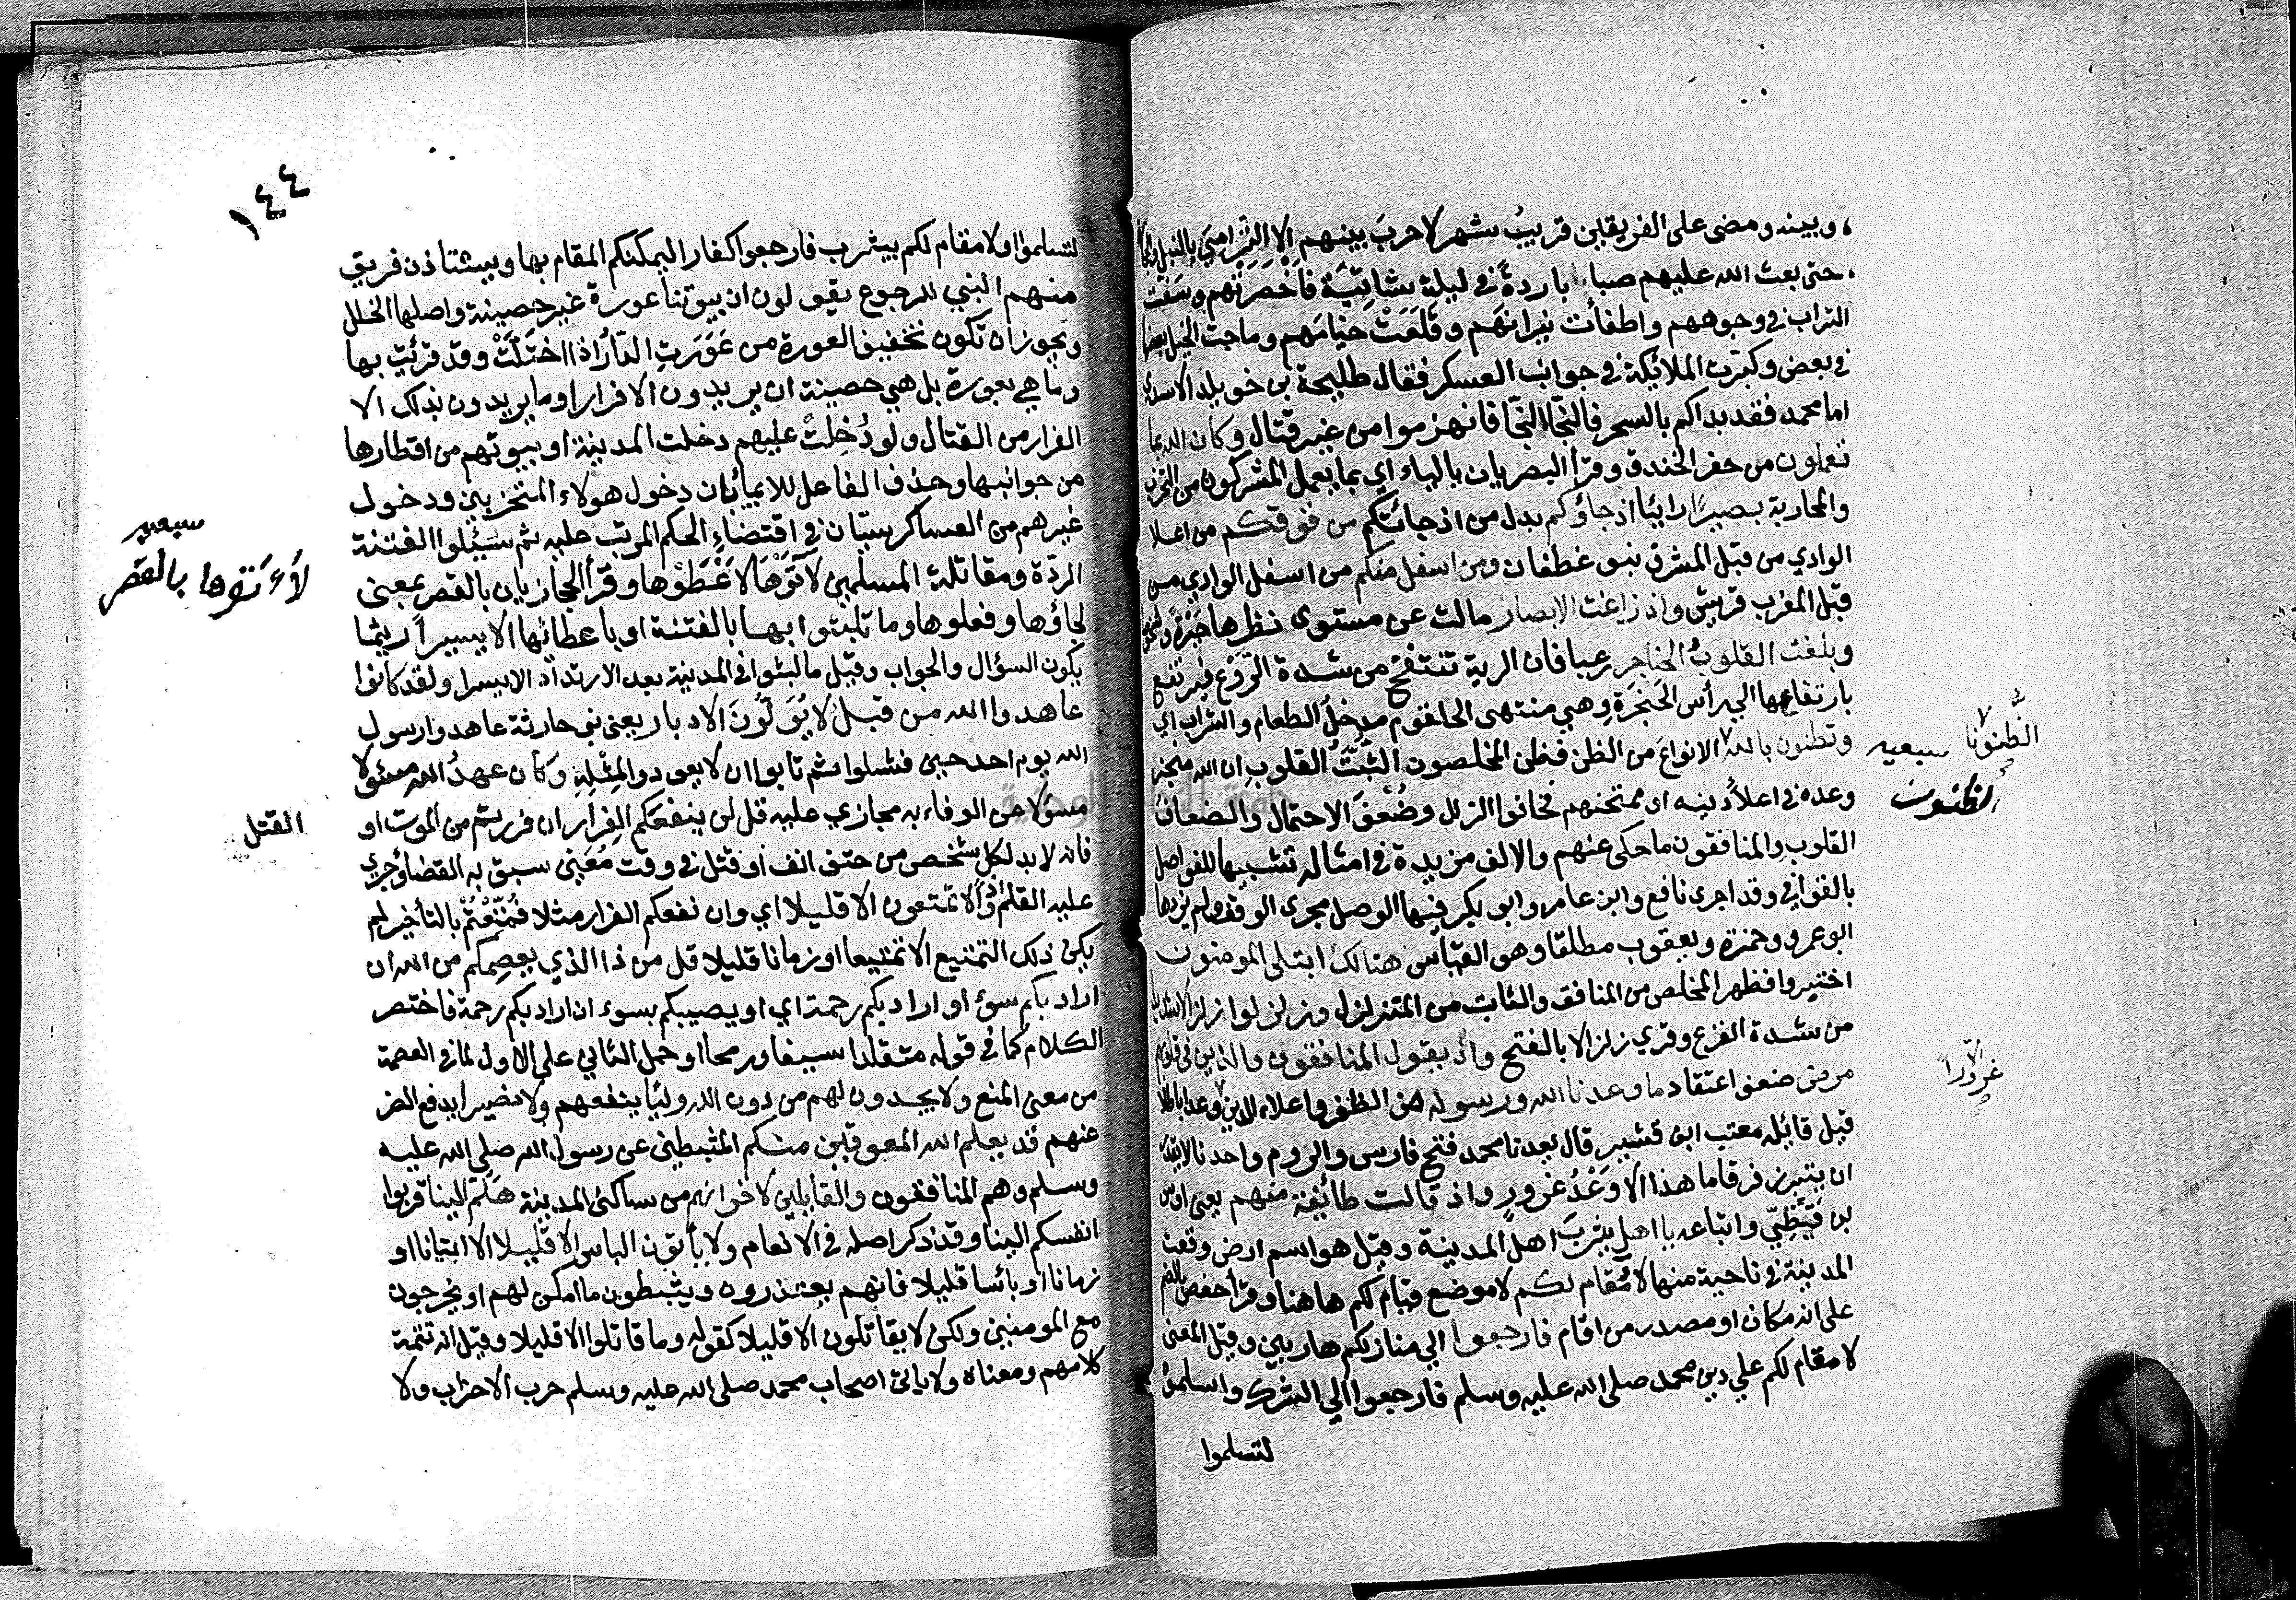 وبينه ومضى على الفريقين قريبُ شهر لا حربَ بينهم إلا التراميَ بالنبل
حتى بعث الله عليهم صبا باردةً في ليلة شاتيَة فأخصرتهم وسفت
التراب في وجوههم واطفأت نيرانهم وقلعَتْ خيامهم وماجت الخيل بعضها
في بعض وكبّرت الملائكة في جوانب العسكر فقال طليحة بن خويلد الاسدي
اما محمد فقد بداكم بالسحر فالنجّا النجّا فانهزموا من غير قتال وكان الله بما
تعملون من حفر الخندق وقرأ البصريان بالياء اي بما يعمل المشركون من التحزب
والمحاربة بصيرًا رايئا اذ جاؤكم بدل من اذ جائتكم من فوقكم من اعلا
الوادي من قبل المشرق بنو غطفان ومن اسفل منكم من اسفل الوادي من
قبل المغرب قريش واذ زاغت الابصار مالت عن مستوى نظرها حَيْرَةً
وبلغت القلوبُ الحناجر رعبا فان الرية تنتفخ من شدة الرَّوْع فيرتفع
بارتفاعها الي رأس الحَنجَرَةِ وهي منتهى الحلقوم مدخلُ الطعام والشراب اي
وتظنون بالله الانواعَ من الظن فظن المخلصون الثُّبَّتُ القلوب ان الله منجز
وعده في اعلاُ دينه او ممتحنهم فخافوا الزلل وضُعْفَ الاحتمال والضعافُ
القلوب والمنافقون ما حكى عنهم والالف مزيدة في امثاله تشبيها للفواصل
بالقوافي وقد اجرى نافع وابن عامر وابو بكر فيها الوصل مجرى الوقف ولم يزدها
ابو عمرو وحمزة ويعقوب مطلقا وهو القياس هنالك ابتلى المومنون
اختبروا فظهر المخلص من المنافق والثابت من المتزلزل وزلزلوا زلزالا شديدا
من شدة الفزع وقري زلزالا بالفتح واذ يقول المنافقون والذين في قلوبهم
مرض ضعف اعتقاد ما وعدنا الله ورسوله من الظفر واعلاء الدين وعدا باطلا
قيل قائله معتب ابن قشير قال يعدنا محمد فتح فارس والروم واحدنا لا يقدر
ان يتبرز فرقا ما هذا الا وَعْدُ غرورٍ واذ قالت طائفة منهم يعني اوس
بن قَيْظِيّ واتباعه يا اهل يثربَ اهل المدينة وقيل هو اسم ارض وقعت
المدينة في ناحية منها لا مُقام لكم لا موضع قيام لكم هاهنا وقرأ حفص بالضم
على انه مكان او مصدر من اقام فارجعوا الي منازلكم هاربين وقيل المعنى
لا مقام لكم علي دين محمد صلى الله عليه وسلم فارجعوا الي الشرك واسلموه
لتسلموا
الظُّنونا سبعيه
الظنون
الّا
غرورًا
١٤٤
لتسلموا او لا مقام لكم بيثرب فارجعوا كفارا ليمكنكم المقام بها ويستاذن فريق
منهم النبي للرجوع يقولون ان بيوتنا عورة غير حصينة واصلها الخلل
ويجوز ان تكون تخفيف العورة من عَوَرَتِ الدّارُ اذا اختَلَّتْ وقد قرئت بها
وما هي بعورة بل هي حصينة ان يريدون الا فرارا وما يريدون بذلك الا
الفرار من القتال ولو دُخِلتْ عليهم دخلت المدينة او بيوتهم من اقطارها
من جوانبها وحذف الفاعل للايمأ بان دخول هولاء المتحزبين ودخول
غيرهم من العساكر سيّان في اقتضاءِ الحكم المرتب عليه ثم سُئِلوا الفتنة
الردة ومقاتلة المسلمين لآتَوْهَا لاَعْطَوْها وقرأ الحجازيان بالقصر بمعنى
لجاؤها وفعلوها وما تلبثوا بها بالفتنة او باعطائها الا يسيراً ريثما
يكون السؤال والجواب وقيل ما لبثوا في المدينة بعد الارتداد الا يسرا ولقد كانوا
عاهدوا الله من قبلُ لا يُوَلُّونَ الادبار يعني بني حارثة عاهدوا رسول
الله يوم احد حين فشلوا ثم تابوا ان لا يعودوا لِمِثْلِهِ وكان عهدُ الله مسئولا
مسولا عن الوفاء به مجازي عليه قل لن ينفعَكم الفِرَارُ ان فررتم من الموت او
فانه لا بد لكل شخص من حتف انف او قتل في وقت مُعَيَّنٍ سبق به القضأ وجرى
عليه القلم وَاذًا لا تمتعون الا قليلا اي وان نفعكم الفرار مثلا فَمُتِّعْتُمْ بالتأخير لم
يكن ذلك التمتيع الا تمتيعا او زمانا قليلا قل من ذا الذي يعصِمكم من الله ان
اراد بكم سوءً او اراد بكم رحمة اي او يصيبكم بسوء ان اراد بكم رحمة فاختصر
الكلام كما في قوله متقلدا سيفا ورمحا او حمل الثاني على الاول لما في العصمة
من معنى المنع ولا يجدون لهم من دون الله وليًا ينفعهم ولا نصيرا يدفع الضر
عنهم قد يعلم الله المعوقين منكم المثبطين عن رسول الله صلى الله عليه
وسلم وهم المنافقون والقايلين لاخوانهم من ساكني المدينة هَلمَّ الينا قربوا
انفسكم الينا وقد ذكر اصله في الانعام ولا يأتون الباس الا قليلا الا ايتيانا او
زمانا او بائسا قليلا فانهم يعتذرون ويثبطون ما امكن لهم او يخرجون
مع المومنين ولكن لا يقاتلون الا قليلا كقوله وما قاتلوا الا قليلا وقيل انه تتمة
كلامهم ومعناه ولا ياتي اصحاب محمد صلى الله عليه وسلم حرب الاحزاب ولا
سبعيه
لأَتَوْها بالقصر
القتل